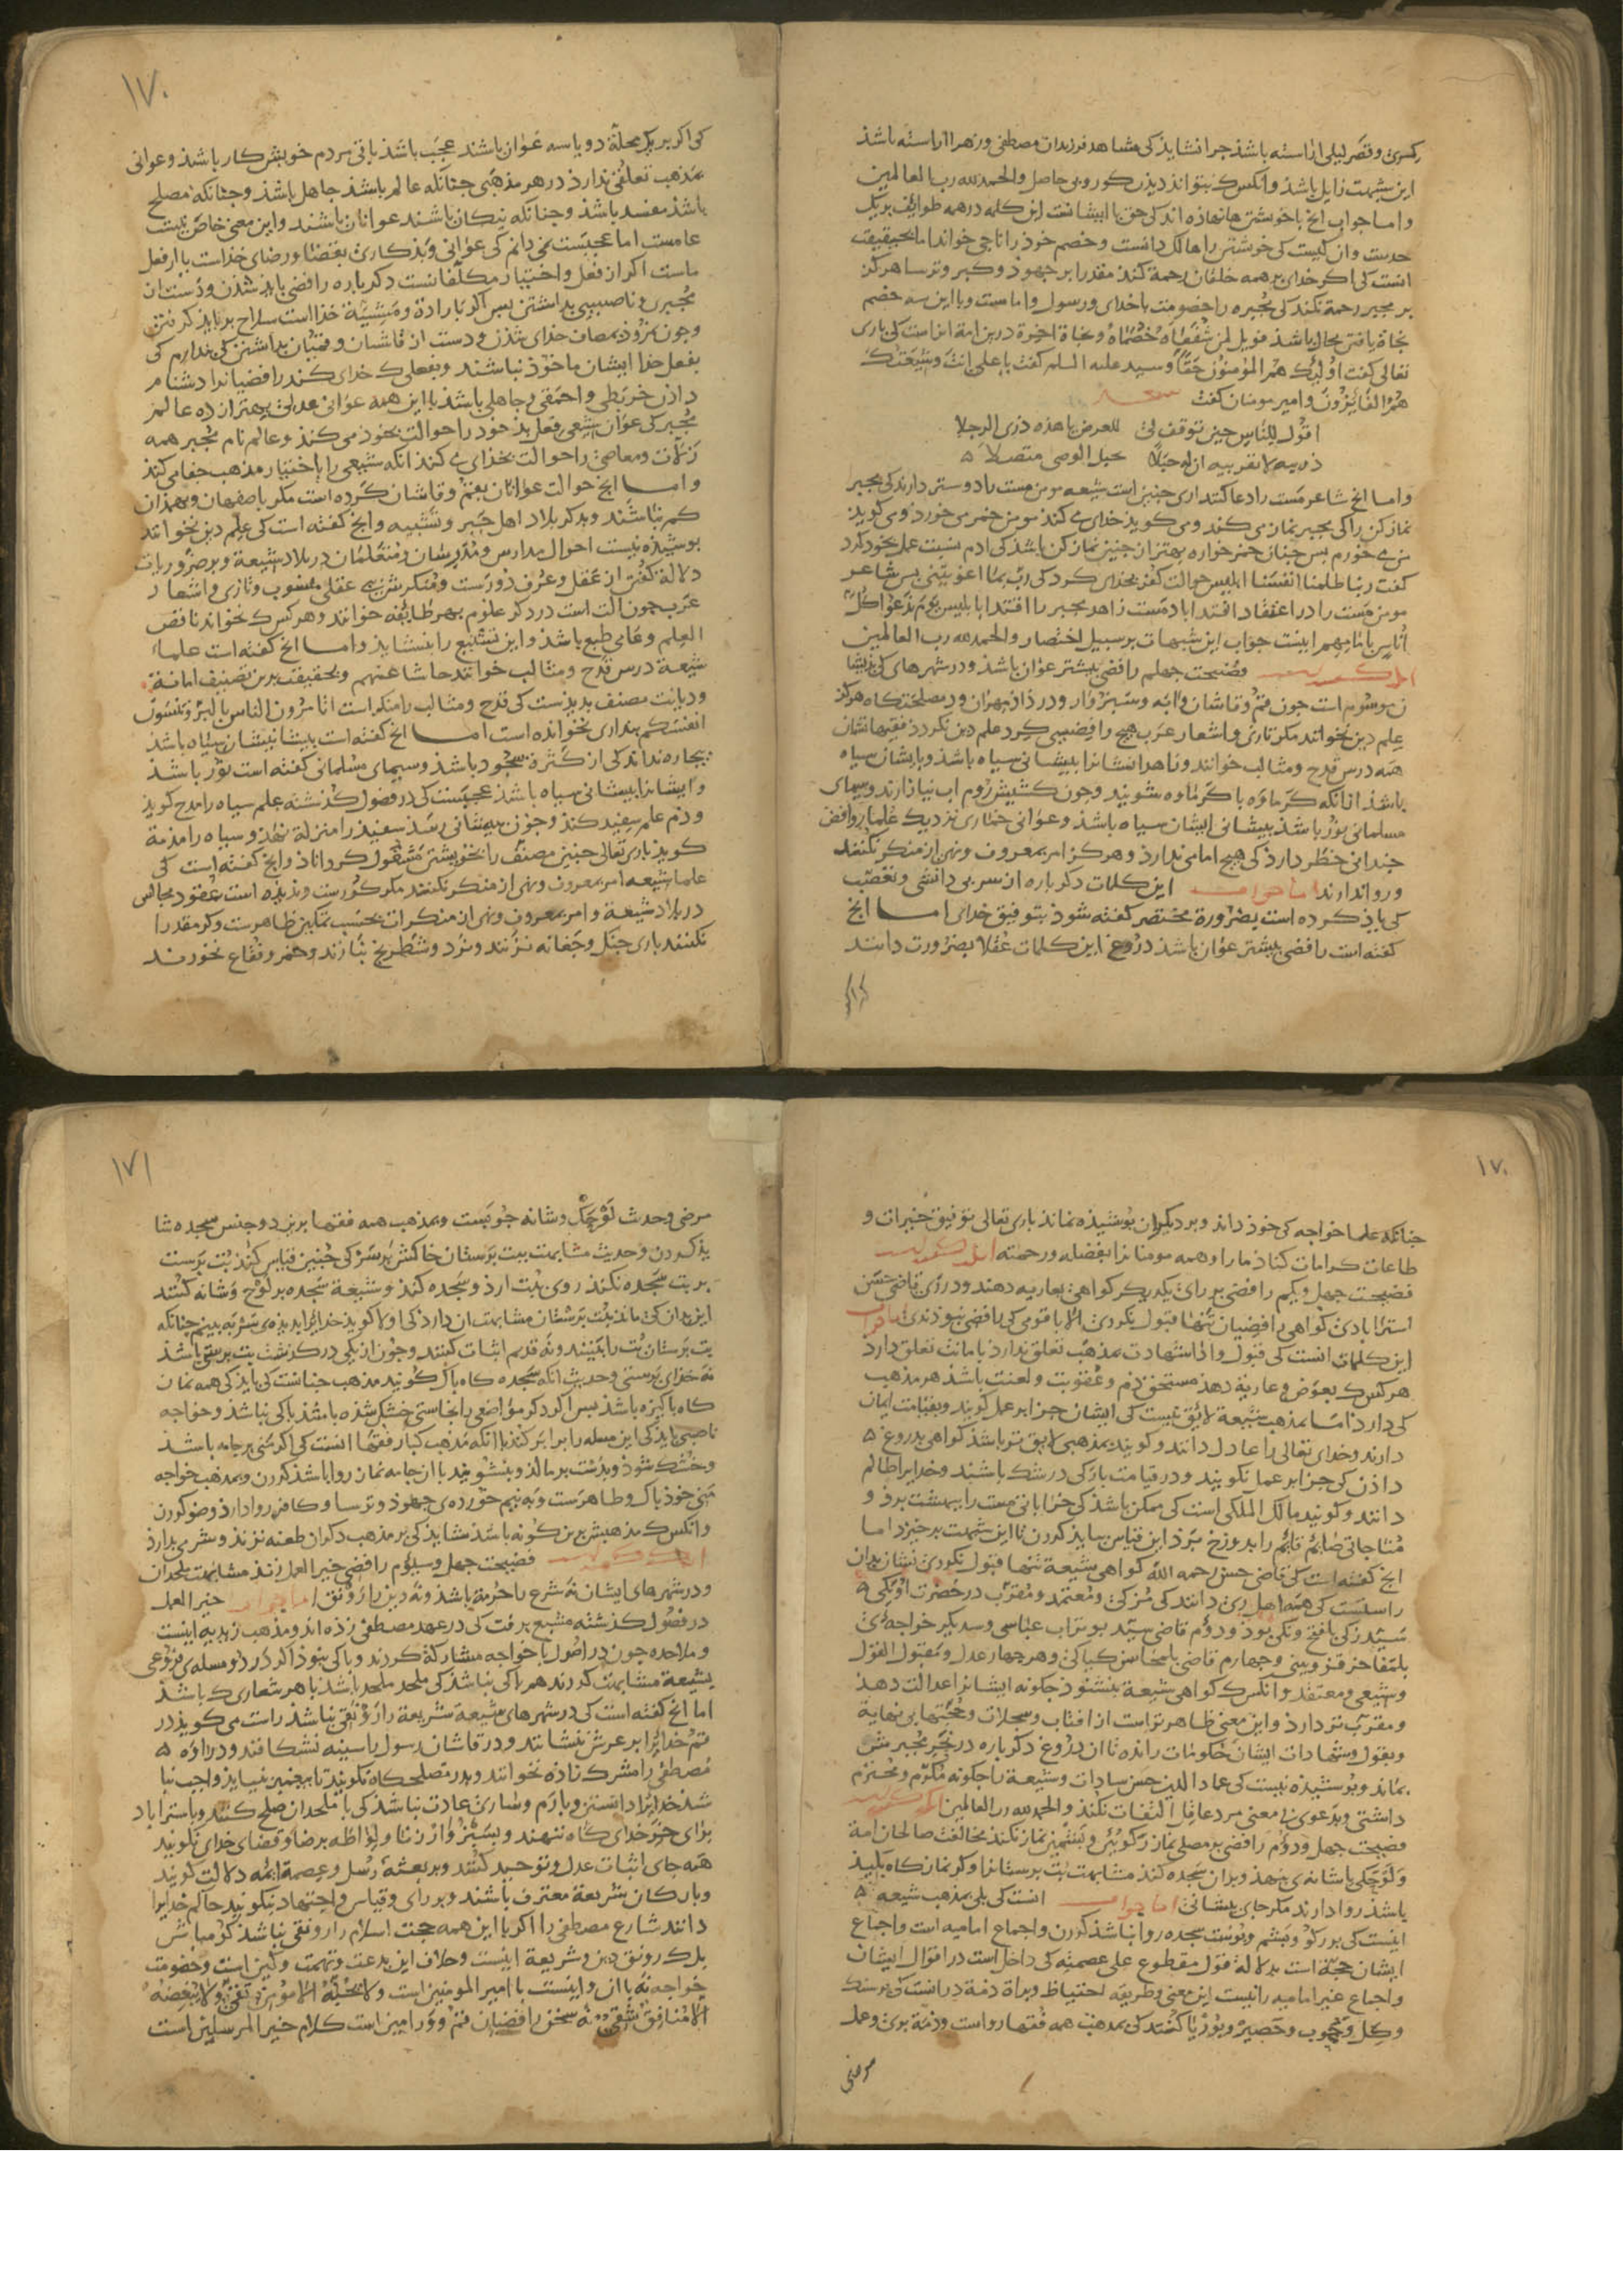 کسری و قصر لیلی اراسته باشذ جرا نشایذ کی مشاهد فرزندان مصطفی و زهرا اراسته باشذ
این شبهت زایل باشذ و انکس که نتواند دیذن کور و بی حاصل والحمد لله رب العالمین
و اما جواب انج با خویشتن هانهاذه اند کی حق با ایشانست این کلمه در همه طوایف بریک
حدست و ان کیست کی خوشتن را هالک دانست و خصم خوذ را ناجی خواند اما بحقیقت
انست کی اکر خدای بر همه خلقان رحمة کند مقدرا بر جهوذ و کبر و ترسا هرکز
بر مجبر رحمة نکند کی مجبره را خصومت با خدای و رسول و امامست و با این سه خصم
نجاة یافتن محال باشذ فویل لمن شفعاه خصماه و نجاة اخرة درین امة انراست کی باری
تعالی کفت اولئک هم المؤمنون حقا و سید علیه السلم کفت یا علی انت و شیعتک
هم الفائزون و امیر مومنان کفت شعر
اقول للناس حین توقف لی للعرض یا هذه ذری الرجلا
ذریه لا تقربیه ان له حبلا بحبل الوصی متصلا
و اما انج شاعر مست را دعا کند این جنین است شیعه مومن مست را دوستر دارند کی مجبر
نمازکن را کی مجبر نماز می کند و می کوید خدای می کند مومن خمر می خورد و می کوید
من می خورم بس جنان خمر خواره بهتر از جنین نمازکن باشذ کی ادم نسبت عمل بخود کرد
کفت ربنا ظلمنا انفسنا ابلیس حوالت کفر بخدای کرد کی رب بما اغویتنی بس شاعر
مومن مست را در اعتقاد اقتدا بادمست زاهد مجبر را اقتدا بابلیس یوم ندعوا کل
اناس بامامهم اینست جواب این شبهات بر سبیل اختصار والحمد لله رب العالمین
فضیحت جهلم رافضی بیشتر عوان باشذ و در شهرهای کی بذیشان
منسوب است جون قم و قاشان و ابه و سبزوار و در ری در زاذ مهران و مصلحتکاه هرکز
علم دین نخوانند مکر تازی و اشعار عرب هیج رافضیی کرد علم دین نکردد فقیهانشان
همه درس قدح و مثالب خوانند و زاهدانشانرا بیشانی سیاه باشذ و پایشان سیاه
باشذ از انکه کرماوه باکرماوه شویند و جون کشیش روم اب نیازارند و سیمای
مسلمانی نور باشذ بیشانی ایشان سیاه باشذ و عوانی خماری نزدیک علماء روافض
جندانی خطر دارد کی هیج امامی ندارد و هرکز امر معروف و نهی از منکر نکنند
و روا ندارند اما جواب این کلمات دکرباره از سر بی دانشی و تعصب
کی یاذ کرده است بضرورة مختصر کفته شود بتوفیق خدای اما انج
کفته است رافضی بیشتر عوان باشذ دروغ این کلمات عقلا بضرورت دانند
۱۷۰
کی اکر بر یک محلة دو یا سه عوان باشند عجب باشذ باقی مردم خویش کار باشذ و عوانی
بمذهب تعلقی ندارد در هر مذهبی جنانکه عالم باشذ جاهل باشذ و جنانکه مصلح
باشذ مفسد باشذ و جنانکه نیکان باشند عوانان باشند و این معنی خاص نیست
عامست اما عجبست نمی دانم کی عوانی و بذکاری بقضا و رضای خداست یا از فعل
ماست اکر از فعل و اختیار مکلفانست دکرباره رافضی باید شدن و دست از
مجبری و ناصبیی بداشتن بس اکر بارادة و مشیة خذا است سلاح بر باید کرفتن
و جون نمروذ بمصاف خدای شدن و دست از قاشان و قمیان بداشتن کی ندارم کی
بفعل خدا ایشان ماخوذ نباشند و بفعلی که خدای کند رافضیانرا دشنام
داذن خربطی و احمقی و جاهلی باشذ با این همه عوانی عدلی بهتر از ده عالم
مجبر کی عوان شیعی فعل بذ خود را حوالت بخوذ می کند و عالم نام مجبر همه
زلات و معاصی را حوالت بخدای می کند انکه شیعی را باختیار مذهب جفا می کند
و اما انج حوالت عوانان بقم و قاشان کرده است مکر باصفهان و همدان
کم نباشند و بدکر بلاد اهل جبر و تشبیه و انج کفته است کی علم دین نخوانند
بوشیده نیست احوال مدارس و مدرسان و متعلمان در بلاد شیعة و بر ضروریات
دلالة کفتن از عقل و عرف دورست و منکرش بی عقلی منسوب و تازی و اشعار
عرب جون الت است در دکر علوم بهر طایفه خوانند و هرکس که نخواند ناقص
العلم و عامی طبع باشذ و این تشنیع را بنشاید و اما انج کفته است علماء
شیعة درس قدح و مثالب خوانند حاشا عنهم و بحقیقت برین تصنیف امانة
و دیانت مصنف بدیذست کی قدح و مثالب را منکر است اتامرون الناس بالبر و تنسون
انفسکم بنداری نخوانده است اما انج کفته است بیشانیشان سیاه باشذ
بیجاره نداند کی از کثرة سجود باشذ و سیمای مسلمانی کفته است نور باشذ
و ایشانرا بیشانی سیاه باشذ عجبست کی در فصول کذشته علم سیاه را مدح کوید
و ذم علم سفید کند و جون به بیشانی رسد سفید را منزلة نهذ و سیاه را مذمة
کوید باری تعالی جنین مصنف را بخویشتن مشغول کرداناذ و انج کفته است کی
علماء شیعه امر بمعروف و نهی از منکر نکنند مکر کورست و ندیذه است عقود مجالس
در بلاد شیعة و امر بمعروف و نهی از منکرات بحسب تمکین ظاهرست و کر مقدرا
نکنند باری جنک و جغانه نزنند و نرد و شطرنج نبازند و خمر و فقاع نخورند
۱۷۰
جنانکه علما خواجه کی خوذ داند و بر دیکران بوشیذه نماند باری تعالی توفیق خیرات و
طاعات کرامات کناد ما را و همه مومنانرا بفضله و رحمته
فضیحت جهل و یکم رافضی بر رای یکدیکر کواهی بعاریه دهند و در ری قاضی حسن
استراباذی کواهی رافضیان تنها قبول نکردی الا باقومی کی رافضی نبوذندی اما جواب
این کلمات انست کی قبول و اداء شهادت بمذهب تعلق ندارذ بامانت تعلق دارذ
هرکس که بعوض و عاریة دهذ مستحق ذم و عقوبت و لعنت باشذ هر مذهب
کی دارذ اما بمذهب شیعة لایق نیست کی ایشان جزا بر عمل کویند و بقیامت ایمان
دارند و خدای تعالی را عادل دانند و کویند بمذهبی لایق تر باشذ کواهی بدروغ
داذن کی جزا بر عمل نکویند و در قیامت بازکی در شک باشند و خدایرا ظالم
دانند و کویند مالک الملکی است کی ممکن باشذ کی خراباتی مست را ببهشت برذ و
مناجاتی صایم قایم را بدوزخ برذ این قیاس بباید کردن تا این شبهت برخیزد اما
انج کفته است کی قاضی حسن رحمه الله کواهی شیعة تنها قبول نکردی نشان بدان
راستست کی همه اهل ری دانند کی مزکی و معتمد و مقرب در حضرت او یکی
سید زکی بافتح ونکی بوذ و دوم قاضی سید بوتراب عباسی و سدیکر خواجه ی
بامفاخر قزوینی و جهارم قاضی بامحاسن کیاکی و هر جهار عدل و مقبول القول
و شیعی و معتقد و انکس که کواهی شیعة بنشنوذ جکونه ایشانرا عدالت دهذ
و مقرب تر دارد و این معنی ظاهرتر است از افتاب و سجلات و حجتها بی نهایة
و بقول و شهادات ایشان حکومات رانده تا ان دروغ دکرباره در بحر مجبرش
بماند و بوشیذه نیست کی عماد الدین حسن سادات و شیعة را جکونه مکرم و محترم
داشتی و بدعوی بی معنی مرد عاقل التفات نکند والحمد لله رب العالمین
فضیحت جهل و دوم رافضی بر مصلی نماز زکوبین و بشمین نماز نکند مخالفت صالحان امة
و لوحکی یا شانه ی بنهذ و بران سجده کند مشابهت بت برستانرا و کر نمازکاه بلیذ
باشذ روا دارند مکر جای بیشانی اما جواب انست کی بلی بمذهب شیعه
اینست کی بر رکو و بشم و بوست سجده روا نباشذ کردن و اجماع امامیه است و اجماع
ایشان حجة است بدلالة قول مقطوع علی عصمته کی داخل است در اقوال ایشان
و اجماع غیر امامیه را نیست این معنی و طریقه احتیاط و براة ذمة در انست کی بر سنک
و کل و جوب و حصیر و بوریا کنند کی بمذهب همه فقها رواست و ذمة بری و عمل
مرضی
۱۷۱
مرضی و حدیث لوحک و شانه جوبست و بمذهب همه فقها برین دو جنس سجده شاید
یذ کردن و حدیث مشابهت ببت برستان خاکش بر سر کی جنین قیاس کند بت برست
بر بت سجده نکند روی ببت ارد و سجده کند و شیعة سجده بر لوح و شانه کنند
این بدان کی ماند بت برستان مشابهت ان دارد کی اولا کوید خدایرا بدیذه ی سر به بینم جنانکه
بت برستان بت را بینند و نه قدیم اثبات کنند و جون از یکی درکذشت بت برستی باشذ
نه خدای برستی و حدیث انکه سجده کاه باک کوید مذهب جنانست کی باید کی همه نماز
کاه باکیزه باشذ بس اکر دکر مواضعی را نجاستی خشک شذه باشذ باکی نباشذ و خواجه
ناصبی باید کی این مسله را برابر کند با انکه مذهب کبار فقها انست کی اکر منی بر جامه باشذ
و خشک شوذ و بدست بر مالذ و بنشویذ با ان جامه نماز روا باشذ کردن و بمذهب خواجه
منی خوذ باک و طاهرست و به نیم خورده ی جهوذ و ترسا و کافر روا دارذ وضو کردن
و انکس که مذهبش برین کونه باشذ نشایذ کی بر مذهب دکران طعنه زند و شرمی بدارد
فضیحت جهل و سیوم رافضی خیر العمل زند مشابهت ملحدان
و در شهرهای ایشان نه شرع را حرمة باشذ و نه دین را رونق اما جواب خیر العمل
در فصول کذشته مشبع برفت کی در عهد مصطفی زده اند و مذهب زیدیه اینست
و ملاحده جون در اصول با خواجه مشارکة کردند و باکی نبوذ اکر در دو مسله ی فروعی
بشیعة مشابهت کردند هم باکی نباشذ کی ملحد ملحد باشذ با هر شعاری که باشذ
اما انج کفته است کی در شهرهای شیعة شریعة را رونقی نباشذ راست می کوید در
قم خدایرا بر عرش ننشانند و در قاشان رسول را سینه نشکافند و در اوه
مصطفی را مشرک زاذه نخوانند و بدر مصلحکاه نکویند تا بیغمبر نیاید واجب نباشد
شذ خدایرا دانستن و بارم و ساری عادت نباشذ کی با ملحدان صلح کنند و باستراباد
برای جز خدای کاه ننهند و بسبزوار زنا و لواطه برضا و قضای خدای نکویند
همه جای اثبات عدل و توحید کنند و بر بعثه رسل و عصمة ایمه دلالت کویند
و بارکان شریعة معترف باشند و بر رای و قیاس و اجتهاد نکویند حاکم خدایرا
دانند شارع مصطفی را اکر با این همه حجت اسلام را رونقی نباشذ کو مباش
بلک رونق دین و شریعة اینست و خلاف این بدعت و تهمت و کین است و خصومت
خواجه نه با ان و اینست با امیر المومنین است و لا یحبه الا مؤمن تقی و لا یبغضه
الا منافق شقی نه سخن رافضیان قم و ورامین است کلام خیر المرسلین است